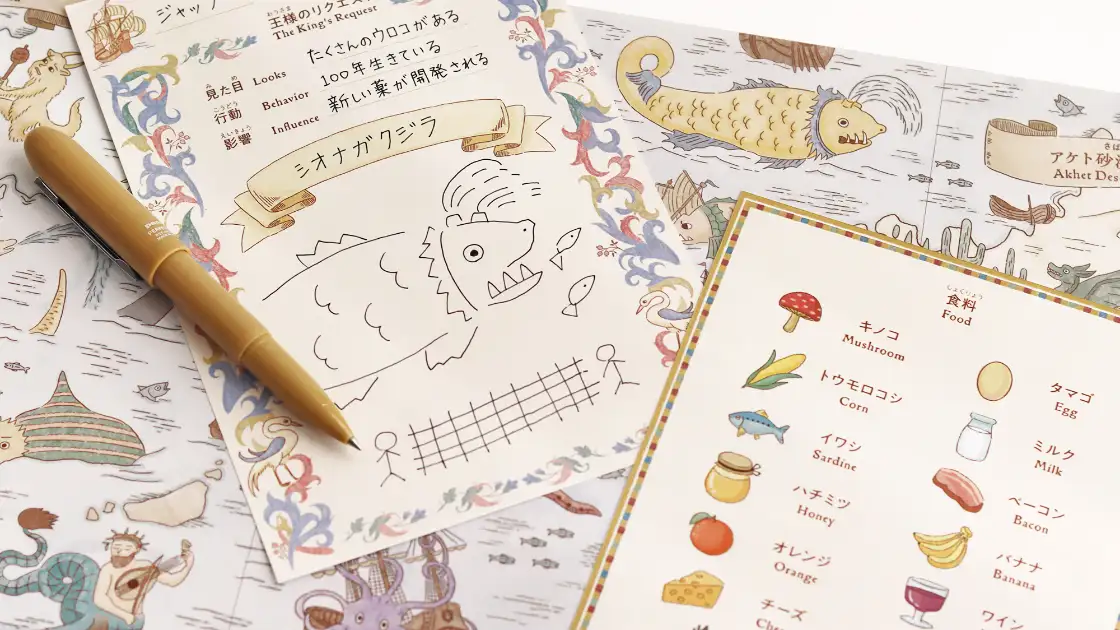 ジャック
おうさま
王様のリクエスト
The King's Request
み め
見た目 Looks たくさんのウロコがある
こうどう
行動 Behavior 100年生きている
えいきょう
影響 Influence 新しい薬が開発される
ミオナガクジラ
さば
アケト砂
Akhet Des
しょくりょう
食料
Food
キノコ
Mushroom
トウモロコシ
Corn
イワシ
Sardine
ハチミツ
Honey
オレンジ
Orange
チーズ
タマゴ
Egg
ミルク
Milk
ベーコン
Bacon
バナナ
Banana
ワイン